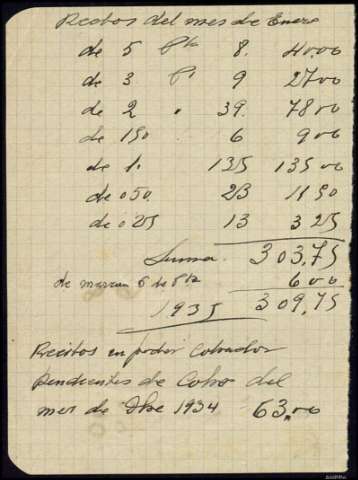 Recibos del mes de Enero
de 5 Pts 8. 40.00
de 3. Pts 9 27 00
de 2 " 39. 78 00
de 1 50 6 9 00
de 1. 135 135 00
de 0 50. 23 11 50
de 0'25 13 3 25
Suma. 303,75
de marzan 6 de Pts 6 00
1935 309,75
Recibos en poder Cobrador
pendientes de Cobro del
mes de Dbe 1934 63,00